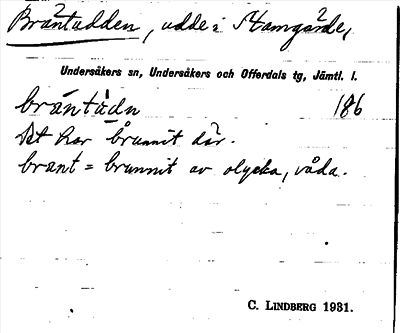 Bräntudden, udde i Hamgärde,
Undersåkers sn, Undersåkers och Offerdals tg, Jämtl. l.
bräntùdn 186
Det har brunnit där.
bränt = brunnit av olycka, våda.
C. LINDBERG 1931.